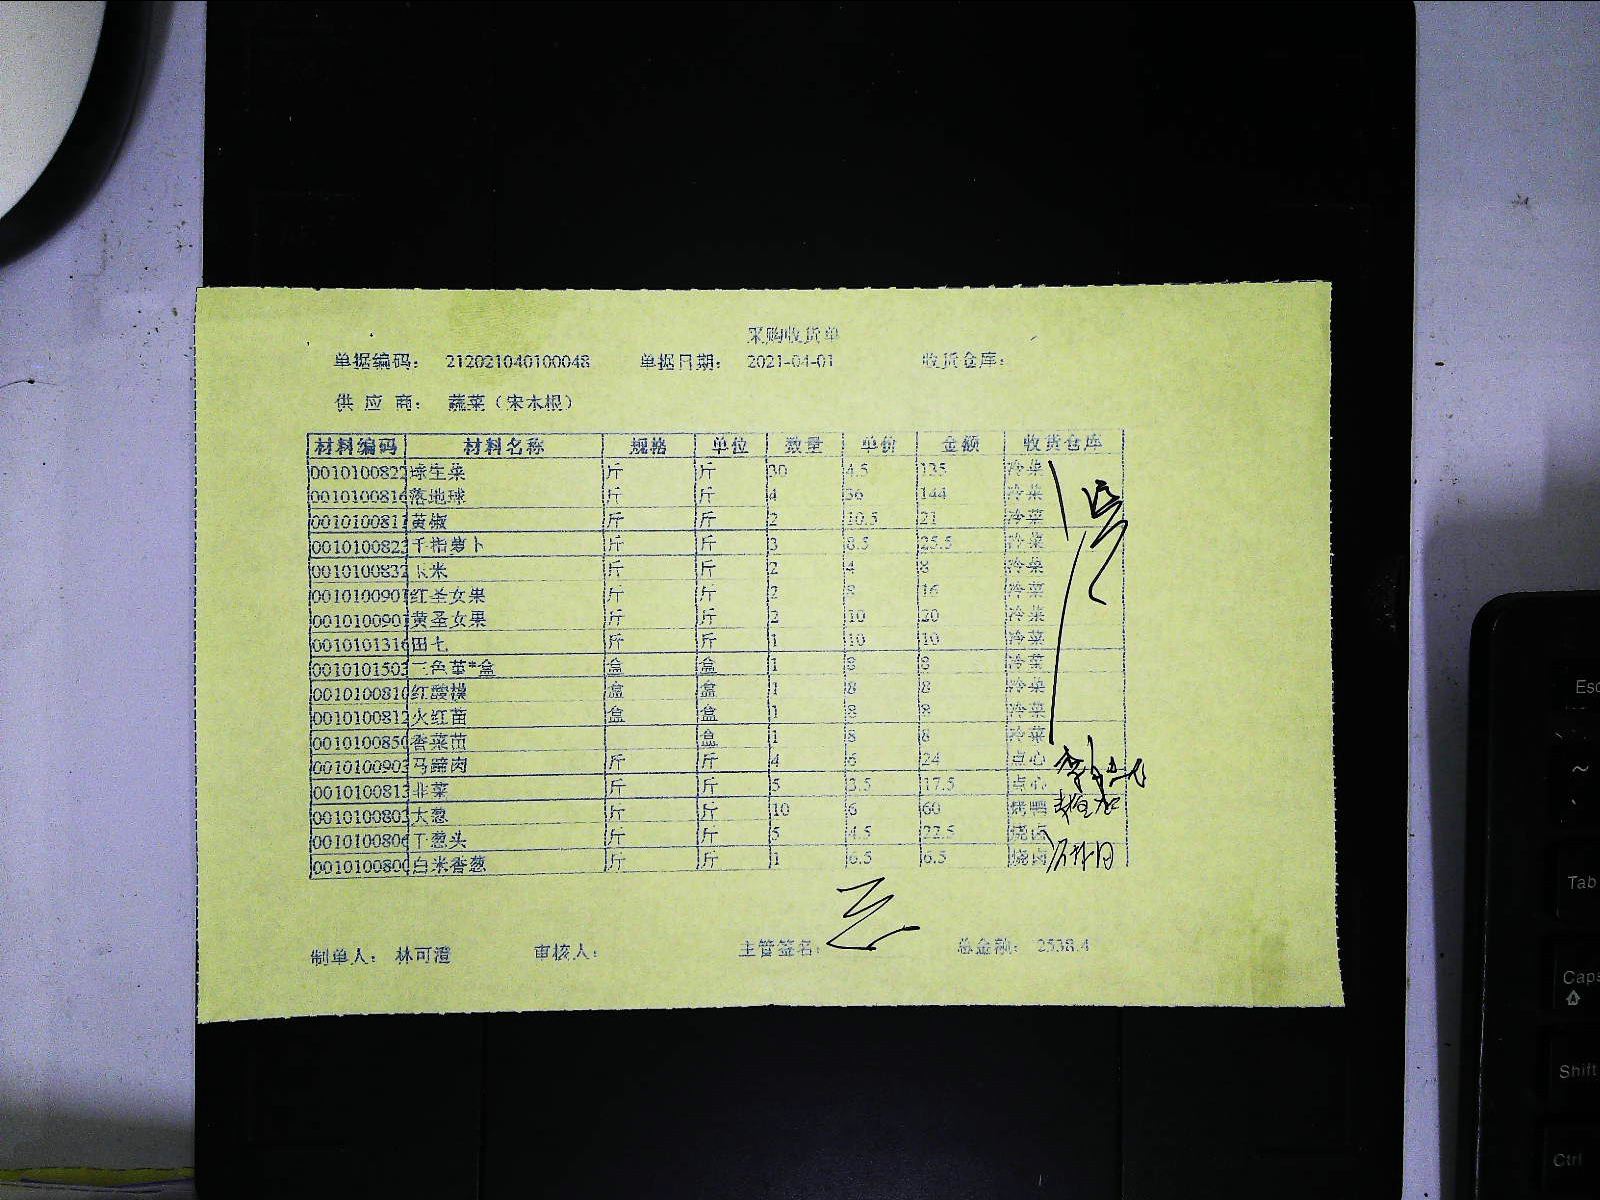 采购收货单
单据编码: 212021040100048 单据日期: 2021-04-01 收货仓库:
供 应 商: 蔬菜（宋本根）
材料编码 材料名称 规格 单位 数量 单价 金额 收货仓库
0010100822 球生菜 斤 斤 30 4.5 135 冷菜
0010100816 落地球 斤 斤 4 36 144 冷菜
0010100811 黄椒 斤 斤 2 10.5 21 冷菜
0010100823 手指萝卜 斤 斤 3 8.5 25.5 冷菜
0010100832 玉米 斤 斤 2 4 8 冷菜
001010090 红圣女果 斤 斤 2 8 16 冷菜
001010090 黄圣女果 斤 斤 2 10 20 冷菜
0010101316 田七 斤 斤 1 10 10 冷菜
0010101503 三色堇*盒 盒 盒 1 8 8 冷菜
0010100810 红酸模 盒 盒 1 8 8 冷菜
0010100812 火红苗 盒 盒 1 8 8 冷菜
0010100850 香菜苗 盒 1 8 8 冷菜
0010100903 马蹄肉 斤 斤 4 6 24 点心
0010100813 韭菜 斤 斤 5 3.5 17.5 点心
0010100803 大葱 斤 斤 10 6 60 烤鸭
0010100806 干葱头 斤 斤 5 4.5 22.5 烧卤
0010100800 白米香葱 斤 斤 1 6.5 6.5 烧卤
制单人: 林可澄 审核人: 主管签名: 总金额: 2538.4